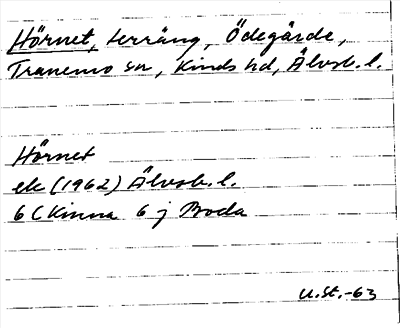 Hörnet, terräng, Ödegärde,
Tranemo sn, Kinds hd, Älvsb. l.
Hörnet
ek (1962) Älvsb. l.
6 C Kinna 6 j Boda
U.St.-63